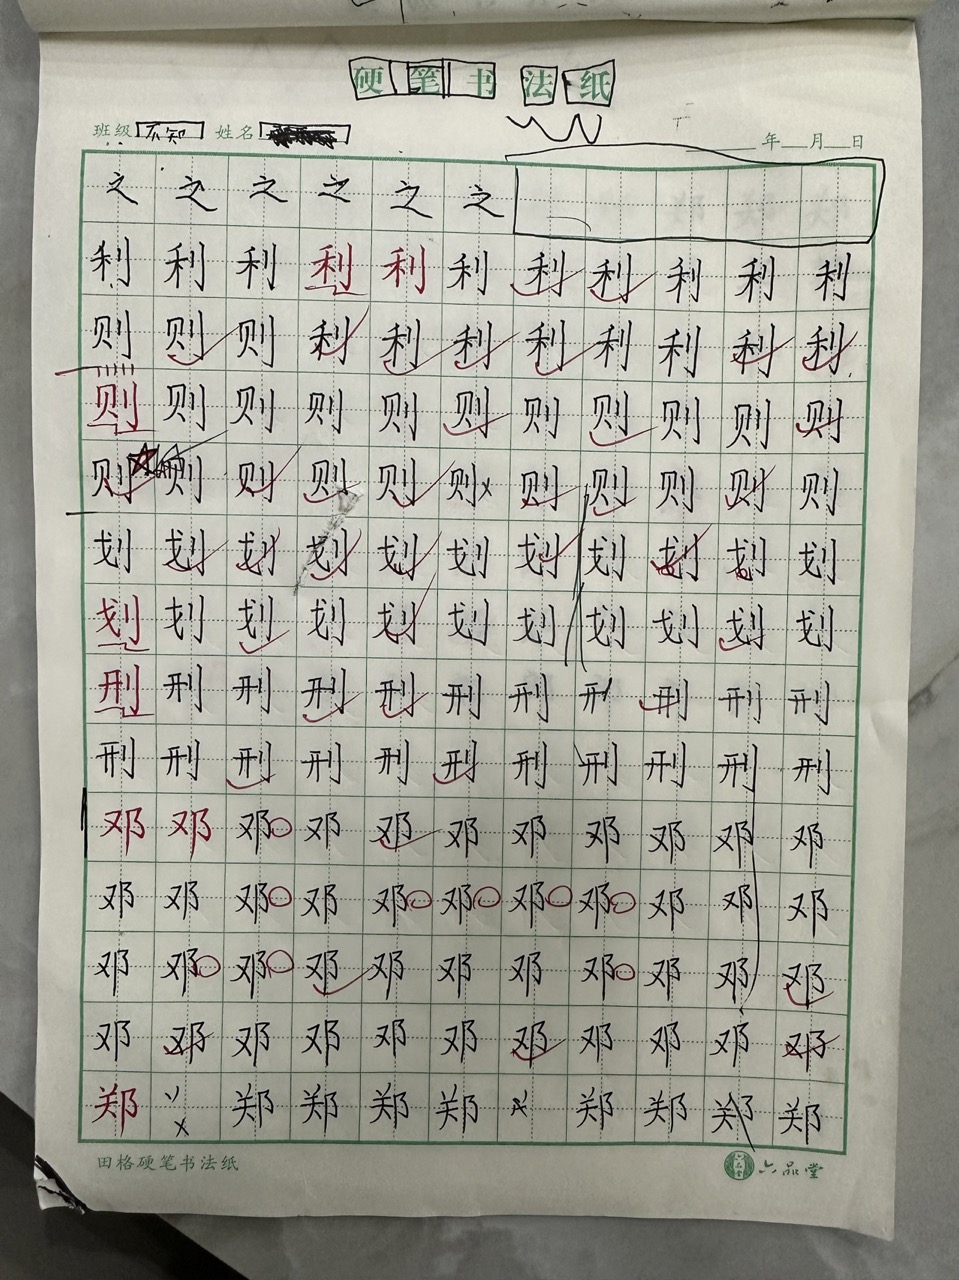 硬笔书法纸
班级 不知 姓名 年 月 日
之 之 之 之 之 之
利 利 利 利 利 利 利 利 利 利 利
则 则 则 利 利 利 利 利 利 利 利
则 则 则 则 则 则 则 则 则 则 则
则 则 则 则 则 则 则 则 则 则 则
划 划 划 划 划 划 划 划 划 划 划
划 划 划 划 划 划 划 划 划 划 划
刑 刑 刑 刑 刑 刑 刑 刑 刑 刑 刑
刑 刑 刑 刑 刑 刑 刑 刑 刑 刑 刑
邓 邓 邓 邓 邓 邓 邓 邓 邓 邓 邓
邓 邓 邓 邓 邓 邓 邓 邓 邓 邓 邓
邓 邓 邓 邓 邓 邓 邓 邓 邓 邓 邓
邓 邓 邓 邓 邓 邓 邓 邓 邓 邓 邓
郑 郑 郑 郑 郑 郑 郑 郑 郑
田格硬笔书法纸 六品堂